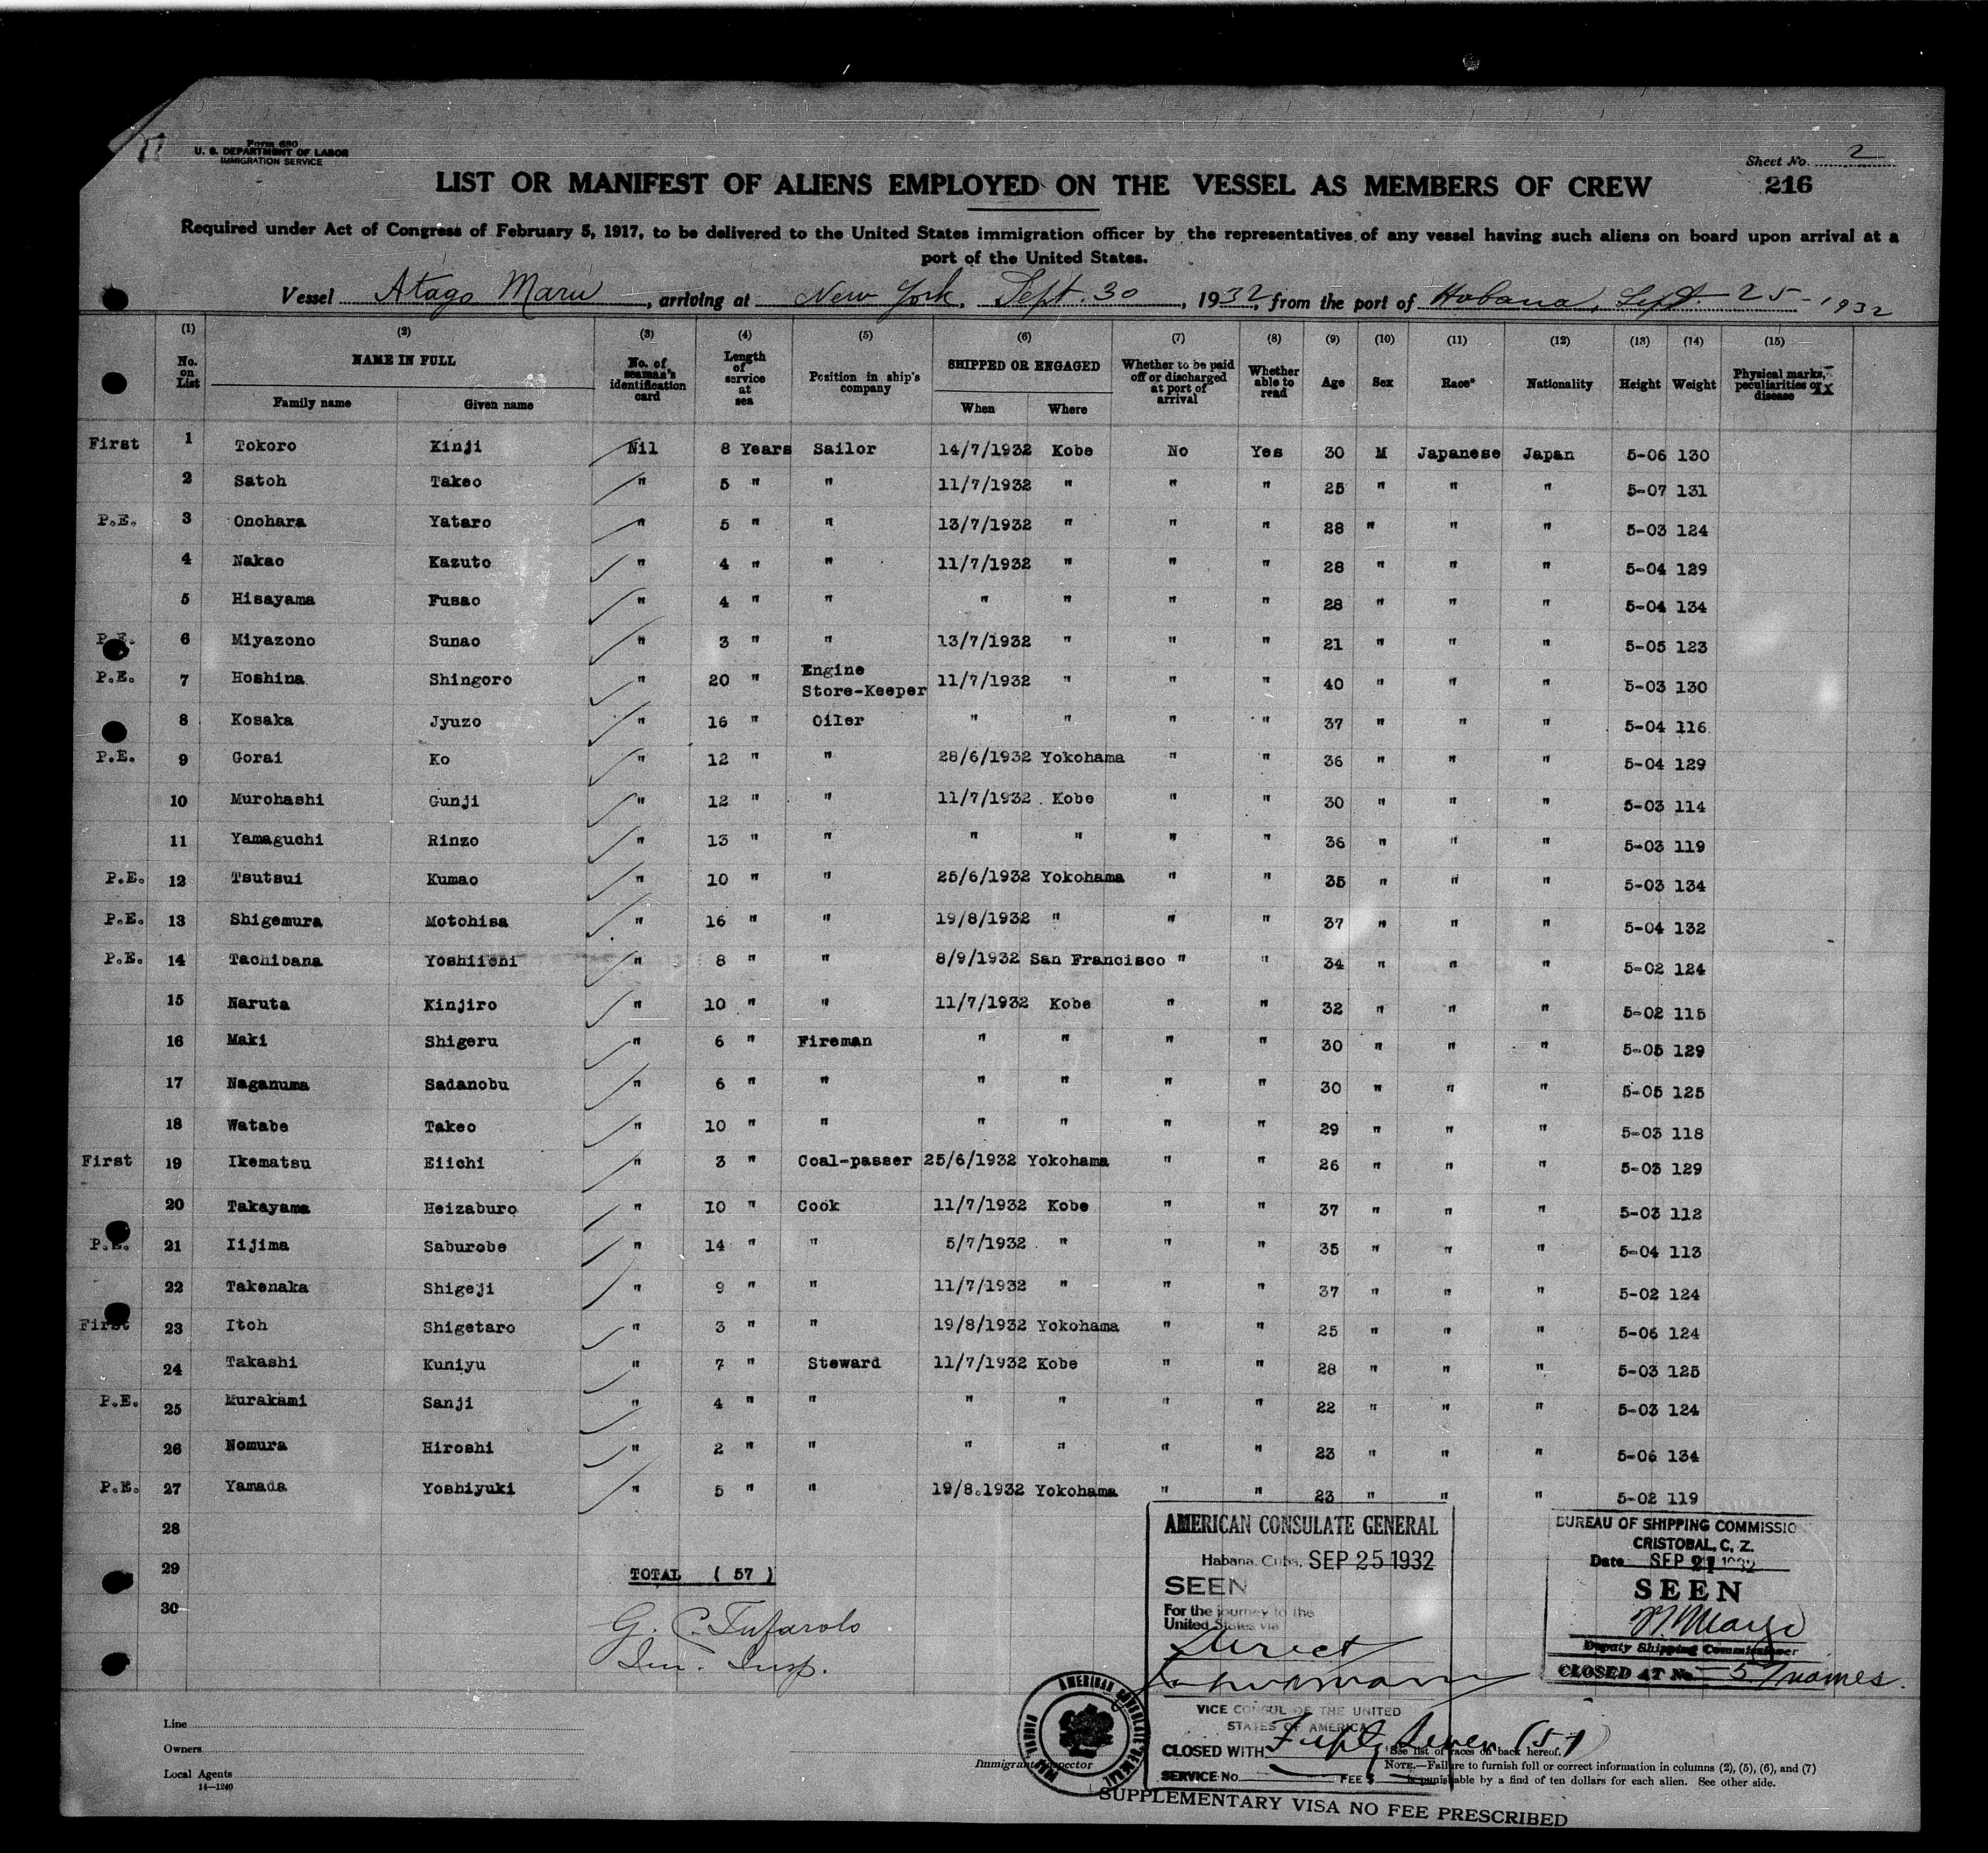 Form 680
U. S. DEPARTMENT OF LABOR
IMMIGRATION SERVICE
Sheet No. 2
216
LIST OR MANIFEST OF ALIENS EMPLOYED ON THE VESSEL AS MEMBERS OF CREW
Required under Act of Congress of February 5, 1917, to be delivered to the United States immigration officer by the representatives of any vessel having such aliens on board upon arrival at a
port of the United States.
Vessel Atago Maru, arriving at New York, Sept. 30, 1932, from the port of Habana, Sept. 25 - 1932
(1) No. on List (2) NAME IN FULL Family name Given name (3) No. of seaman's identification card (4) Length of service at sea (5) Position in ship's company (6) SHIPPED OR ENGAGED When Where (7) Whether to be paid off or discharged at port of arrival (8) Whether able to read (9) Age (10) Sex (11) Race* (12) Nationality (13) Height (14) Weight (15) Physical marks, peculiarities or disease
First 1 Tokoro Kinji Nil 8 Years Sailor 14/7/1932 Kobe No Yes 30 M Japanese Japan 5-06 130
2 Satoh Takeo " 5 " " 11/7/1932 " " " 25 " " " 5-07 131
P.E. 3 Onohara Yataro " 5 " " 13/7/1932 " " " 28 " " " 5-03 124
4 Nakao Kazuto " 4 " " 11/7/1932 " " " 28 " " " 5-04 129
5 Hisayama Fusao " 4 " " " " " " 28 " " " 5-04 134
P.E. 6 Miyazono Sunao " 3 " " 13/7/1932 " " " 21 " " " 5-05 123
P.E. 7 Hoshina Shingoro " 20 " Engine Store-Keeper 11/7/1932 " " " 40 " " " 5-03 130
8 Kosaka Jyuzo " 16 " Oiler " " " " 37 " " " 5-04 116
P.E. 9 Gorai Ko " 12 " " 28/6/1932 Yokohama " " 36 " " " 5-04 129
10 Murohashi Gunji " 12 " " 11/7/1932 Kobe " " 30 " " " 5-03 114
11 Yamaguchi Rinzo " 13 " " " " " " 36 " " " 5-03 119
P.E. 12 Tsutsui Kumao " 10 " " 25/6/1932 Yokohama " " 35 " " " 5-03 134
P.E. 13 Shigemura Motohisa " 16 " " 19/8/1932 " " " 37 " " " 5-04 132
P.E. 14 Tachibana Yoshiichi " 8 " " 8/9/1932 San Francisco " " 34 " " " 5-02 124
15 Naruta Kinjiro " 10 " " 11/7/1932 Kobe " " 32 " " " 5-02 115
16 Maki Shigeru " 6 " Fireman " " " " 30 " " " 5-05 129
17 Naganuma Sadanobu " 6 " " " " " " 30 " " " 5-05 125
18 Watabe Takeo " 10 " " " " " " 29 " " " 5-03 118
First 19 Ikematsu Eiichi " 3 " Coal-passer 25/6/1932 Yokohama " " 26 " " " 5-03 129
20 Takayama Heizaburo " 10 " Cook 11/7/1932 Kobe " " 37 " " " 5-03 112
P.E. 21 Iijima Saburobe " 14 " " 5/7/1932 " " " 35 " " " 5-04 113
22 Takenaka Shigeji " 9 " " 11/7/1932 " " " 37 " " " 5-02 124
First 23 Itoh Shigetaro " 3 " " 19/8/1932 Yokohama " " 25 " " " 5-06 124
24 Takashi Kuniyu " 7 " Steward 11/7/1932 Kobe " " 28 " " " 5-03 125
P.E. 25 Murakami Sanji " 4 " " " " " " 22 " " " 5-03 124
26 Nomura Hiroshi " 2 " " " " " " 23 " " " 5-06 134
P.E. 27 Yamada Yoshiyuki " 5 " " 19/8.1932 Yokohama " " 23 " " " 5-02 119
28
29
30
TOTAL ( 57 )
G. C. Tufarolo
Im. Insp.
AMERICAN CONSULATE GENERAL
Habana, Cuba, SEP 25 1932
SEEN
For the journey to the
United States via
Direct
VICE CONSUL OF THE UNITED
STATES OF AMERICA
CLOSED WITH Fifty Seven (57)
SERVICE No. FEE $
BUREAU OF SHIPPING COMMISSIO
CRISTOBAL, C. Z.
Date SEP 21 1932
SEEN
Deputy Shipping Commissioner
CLOSED AT No. 57 names.
Line
Owners
Local Agents
14—1240
Immigrant Inspector
AMERICAN CONSULATE GENERAL
See list of races on back hereof.
NOTE.—Failure to furnish full or correct information in columns (2), (5), (6), and (7)
is punishable by a find of ten dollars for each alien. See other side.
SUPPLEMENTARY VISA NO FEE PRESCRIBED